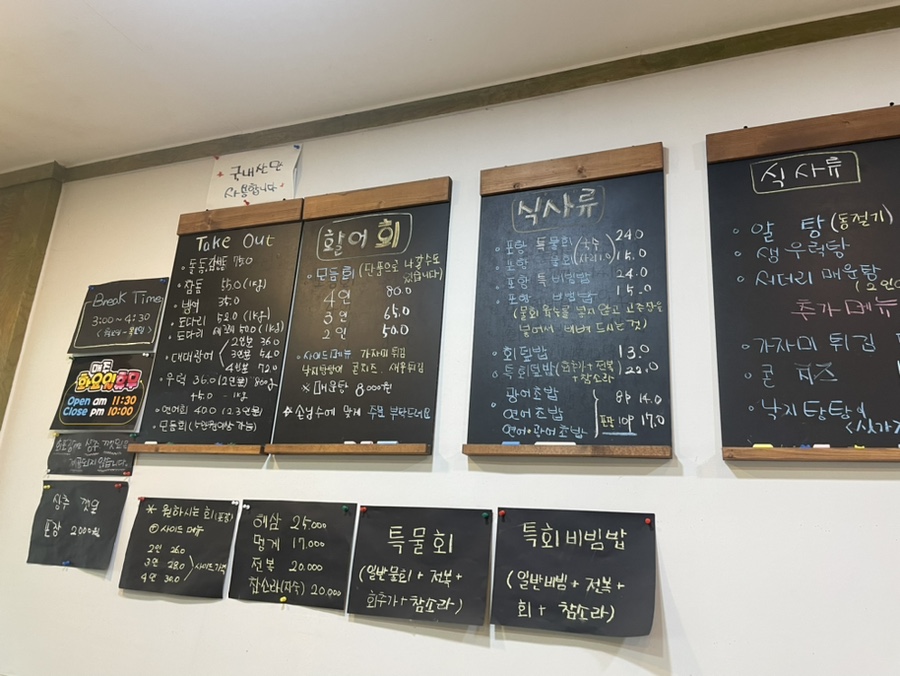 국내산만
사용합니다
Take Out
돌돔,감반돔 75.0
참돔 55.0 (1kg)
병어 35.0
도다리 55.0 (1kg)
도다리 세꼬시 50.0 (1kg)
대대광어
2인분 36.0
3인분 54.0
4인분 72.0
우럭 36.0 (2인분) 800g
+5.0 - 1kg
연어회 40.0 (2.3인분)
모듬회 (5인분이상 가능)
활어회
모듬회 (단품으로 나갈수도
있습니다)
4인 80.0
3인 65.0
2인 50.0
사이드메뉴 가자미튀김
낙지탕탕이 콘치즈 새우튀김
※ 매운탕 8,000원
손님수에 맞게 주문 부탁드려요
식사류
포항 특물회 24.0
포항 물회 15.0
(육수
사리1.0)
포항 특 비빔밥 24.0
포항 비빔밥 15.0
(물회 육수를 넣지 않고 고추장을
넣어서 비벼 드시는 것)
회덮밥 13.0
특회덮밥 (회추가 + 전복
+ 참소라) 22.0
광어초밥
연어초밥
연어·광어초밥
8P 14.0
10P 17.0
식사류
알 탕 (동절기)
생 우럭탕
서더리 매운탕
(2인
추가메뉴
가자미 튀김
콘 치즈
낙지탕탕이
<싯가
Break Time
3:00~4:30
매주
화요일휴무
Open am 11:30
Close pm 10:00
포장길에 상추 깻잎은
제공되지 않습니다.
상추 깻잎
포장 2000원
※ 원하시는 회 (포함)
사이드 메뉴
2인 26.0
3인 28.0
4인 30.0
사이드가격
해삼 25,000
멍게 17,000
전복 20,000
참소라(자숙) 20,000
특물회
(일반물회 + 전복 +
회추가 + 참소라)
특회비빔밥
(일반비빔 + 전복 +
회 + 참소라)